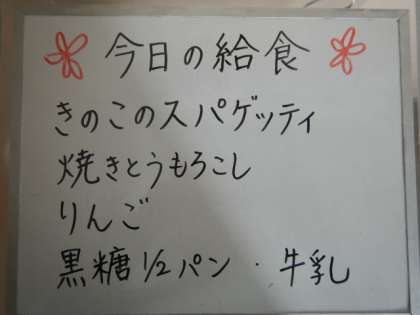 今日の給食
きのこのスパゲッティ
焼きとうもろこし
りんご
黒糖1/2パン・牛乳